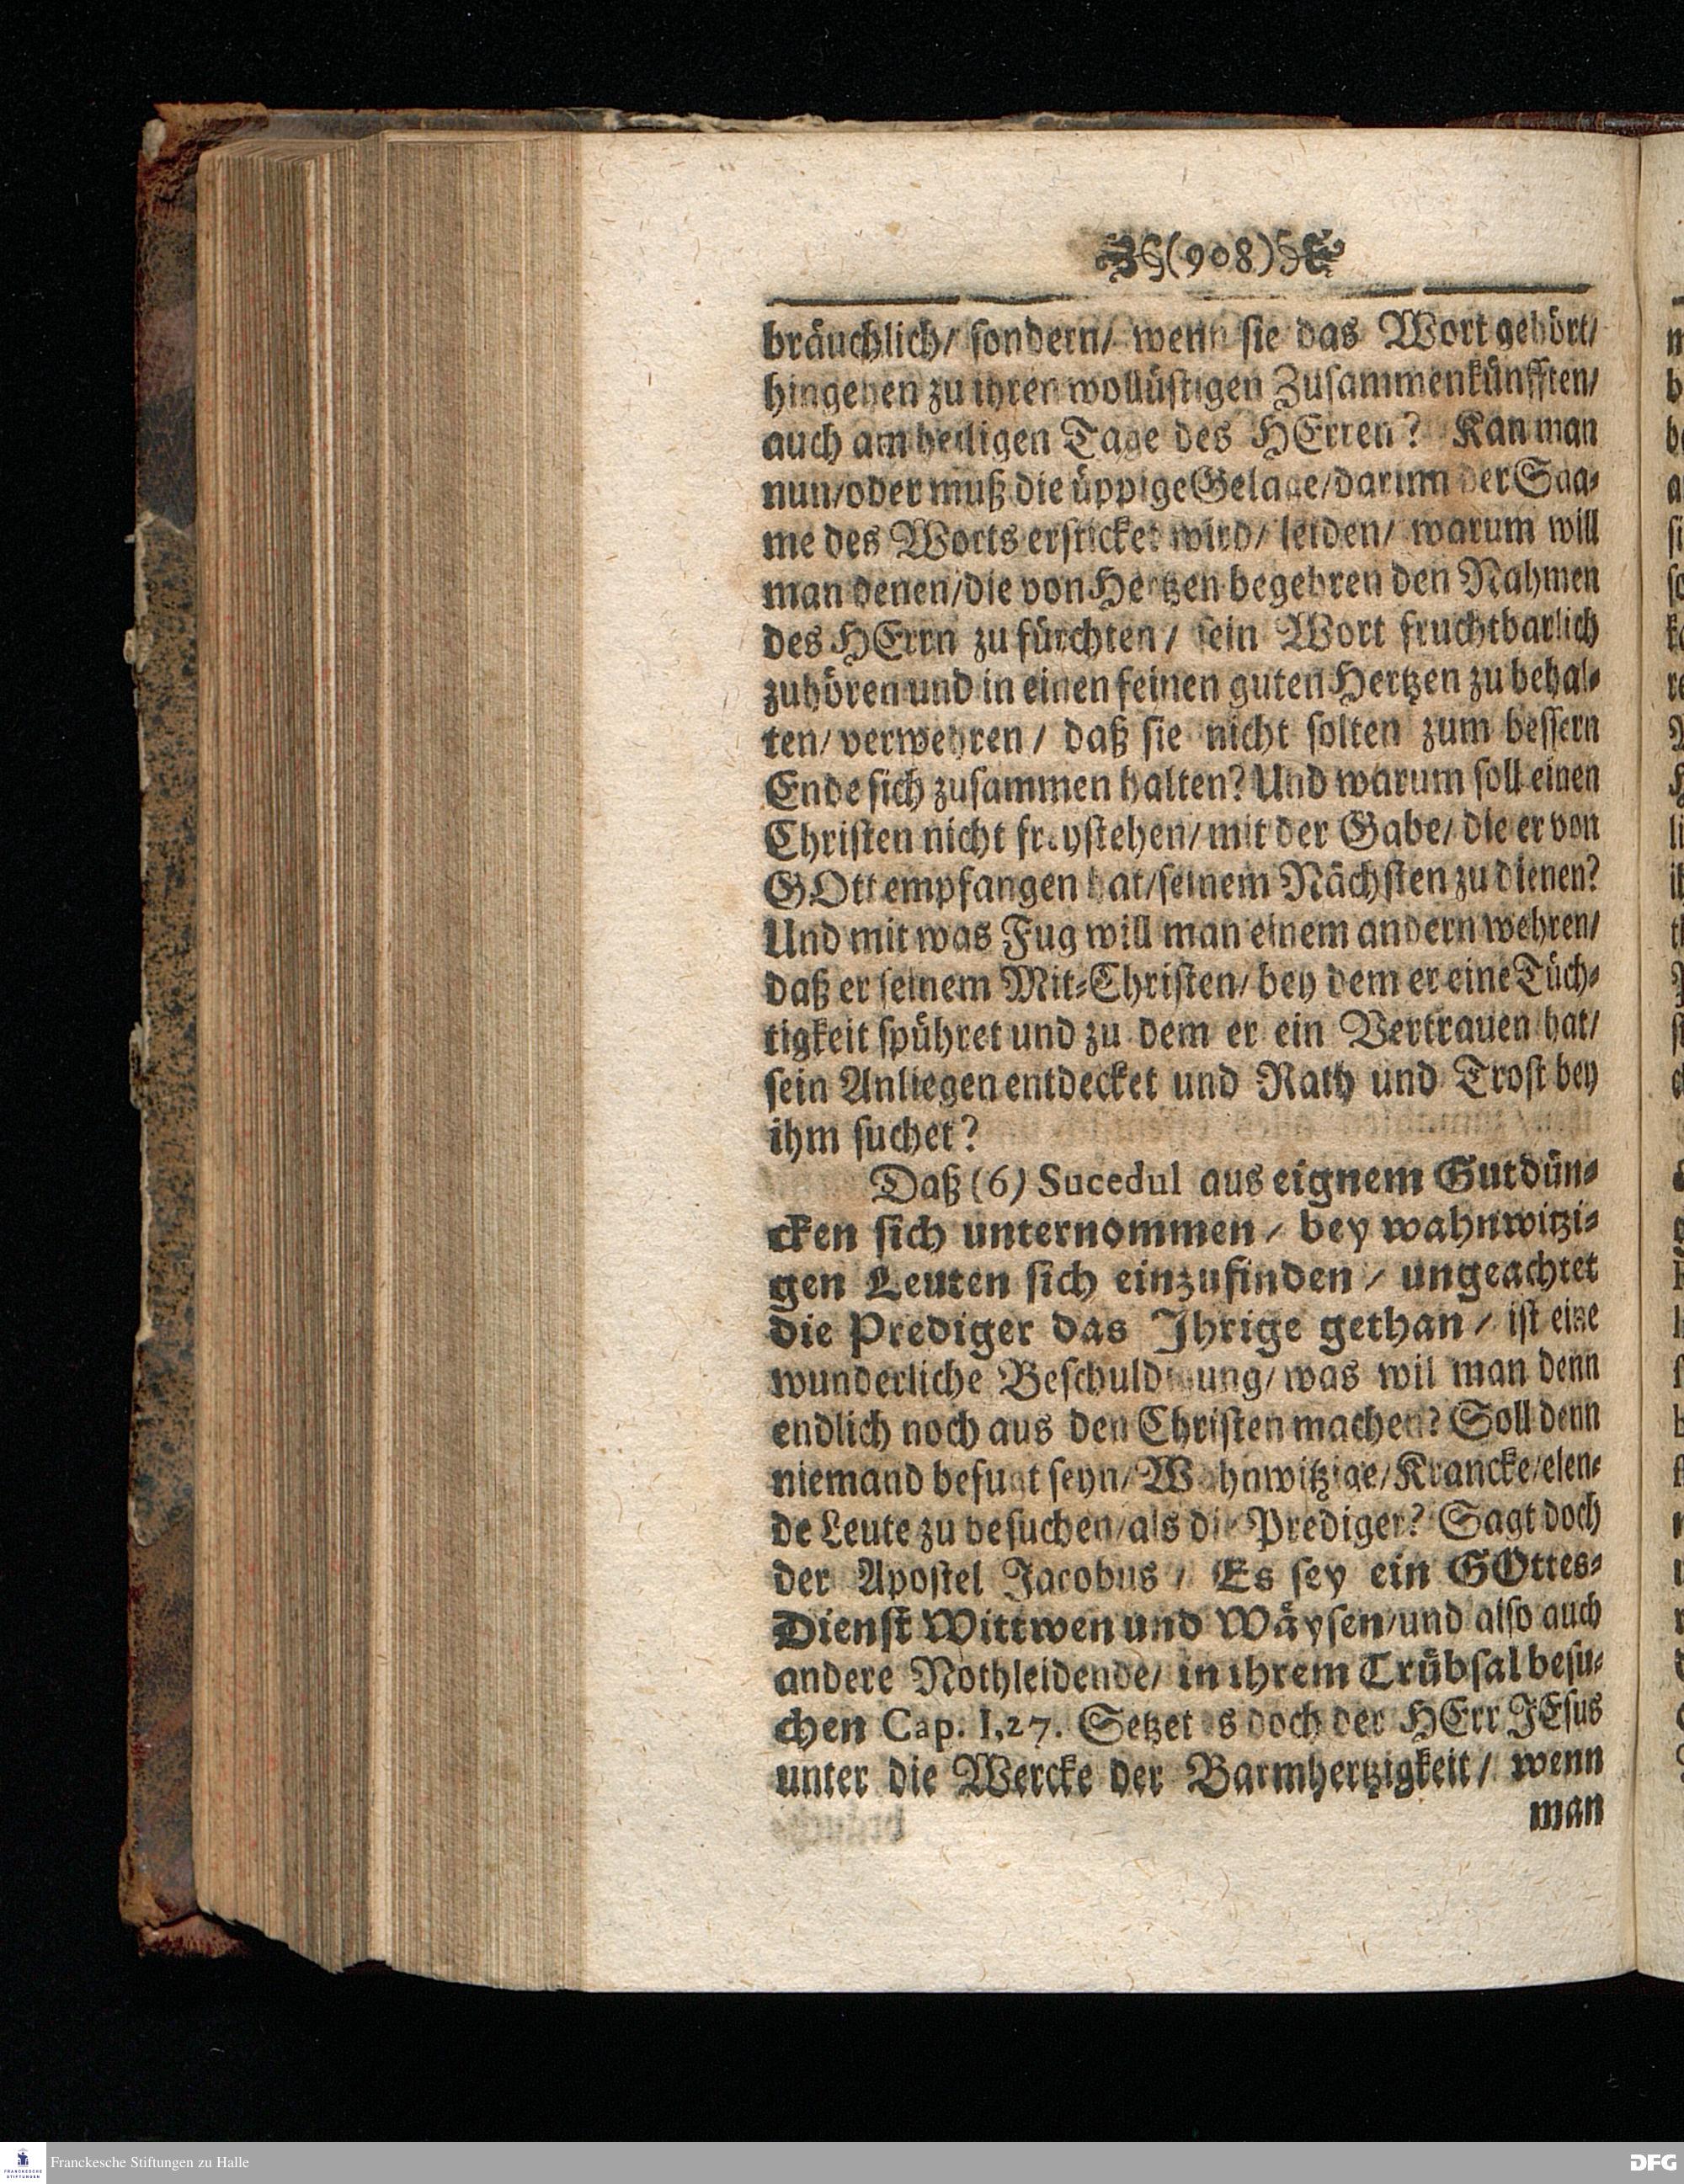 (908)
bräuchlich/ sondern/ wenn sie das Wort gehört/
hingehen zu ihren wollüstigen Zusammenkünfften/
auch am heiligen Tage des HErren? Kan man
nun/oder muß die üppige Gelage/darinn der Saa-
me des Worts ersticket wird/ leiden/ warum will
man denen/die von Hertzen begehren den Nahmen
des HErrn zu fürchten/ sein Wort fruchtbarlich
zuhören und in einen feinen guten Hertzen zu behal-
ten/ verwehren/ daß sie nicht solten zum bessern
Ende sich zusammen halten? Und warum soll einen
Christen nicht freystehen/ mit der Gabe/ die er von
GOtt empfangen hat/seinem Nächsten zu dienen?
Und mit was Fug will man einem andern wehren/
daß er seinem Mit-Christen/ bey dem er eine Tüch-
tigkeit spühret und zu dem er ein Vertrauen hat/
sein Anliegen entdecket und Rath und Trost bey
ihm suchet?
Daß (6) Sucedul aus eignem Gutdün-
cken sich unternommen/ bey wahnwitzi-
gen Leuten sich einzufinden/ ungeachtet
die Prediger das Ihrige gethan/ ist eine
wunderliche Beschuldigung/ was wil man denn
endlich noch aus den Christen machen? Soll denn
niemand befugt seyn/ Wahnwitzige/Krancke/elen-
de Leute zu besuchen/als die Prediger? Sagt doch
der Apostel Jacobus/ Es sey ein GOttes-
Dienst Wittwen und Wäysen/und also auch
andere Nothleidende/ in ihrem Trübsal besu-
chen Cap. I,27. Setzet es doch der HErr JEsus
unter die Wercke der Barmhertzigkeit/ wenn
man
Franckesche Stiftungen zu Halle
DFG